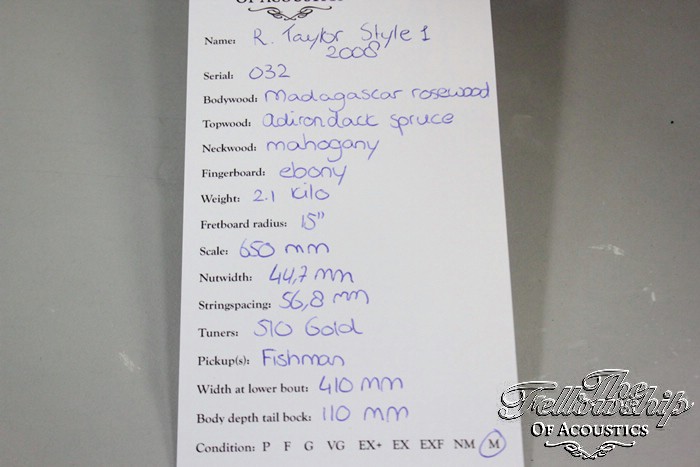 OF ACOUSTICS
Name: R. Taylor Style 1
2008
Serial: 032
Bodywood: Madagascar rosewood
Topwood: adirondack spruce
Neckwood: mahogany
Fingerboard: ebony
Weight: 2.1 kilo
Fretboard radius: 15"
Scale: 650 mm
Nutwidth: 44,7 mm
Stringspacing: 56,8 mm
Tuners: 510 Gold
Pickup(s): Fishman
Width at lower bout: 410 mm
Body depth tail bock: 110 mm
Condition: P F G VG EX+ EX EXF NM M
The
Fellowship
OF ACOUSTICS